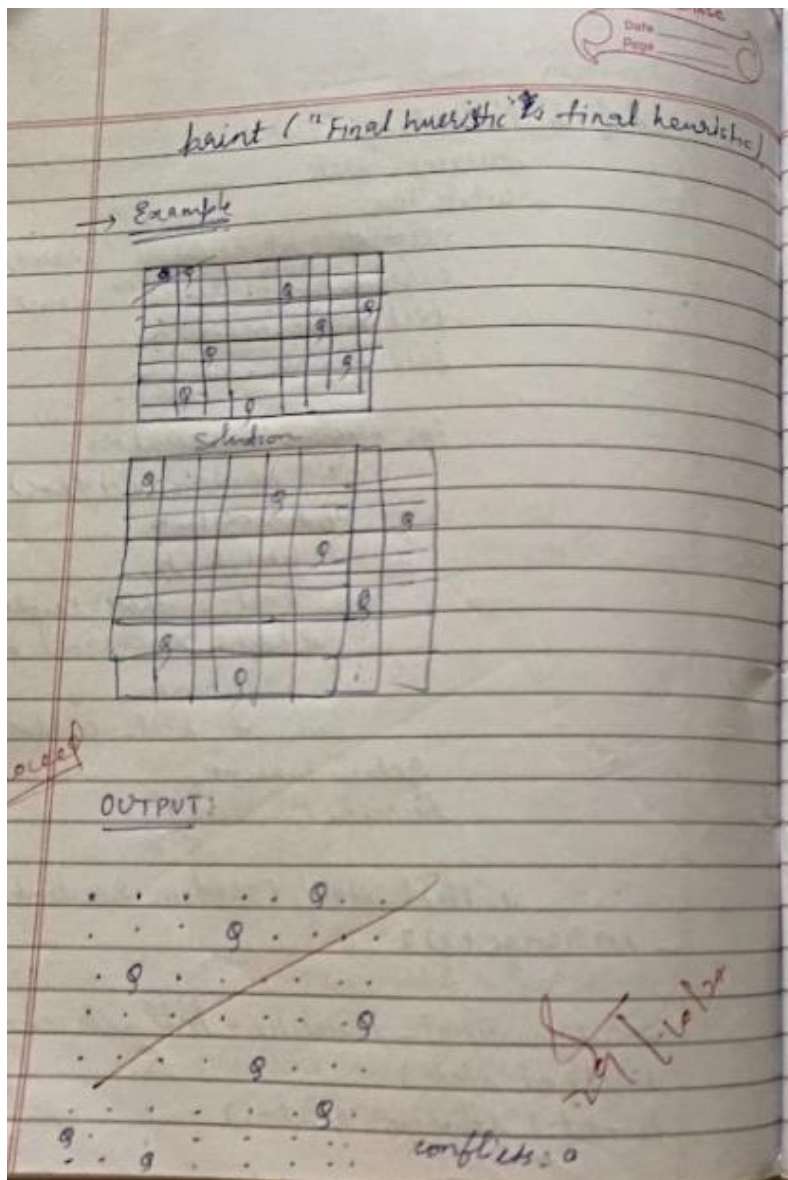 Date
Page
print ("Final hueristic" final heuristic)
→ Example
Q
Q
Q
Q
Q
Q
Q
Q
Solution
Q
Q
Q
Q
Q
Q
Q
OUTPUT:
. . . . . Q . .
. . . Q . . . .
. Q . . . . . .
. . . . . . . Q
. . . . Q . . .
. . . . . . Q .
Q . . . . . . .
. . Q . . . . .
conflicts = 0